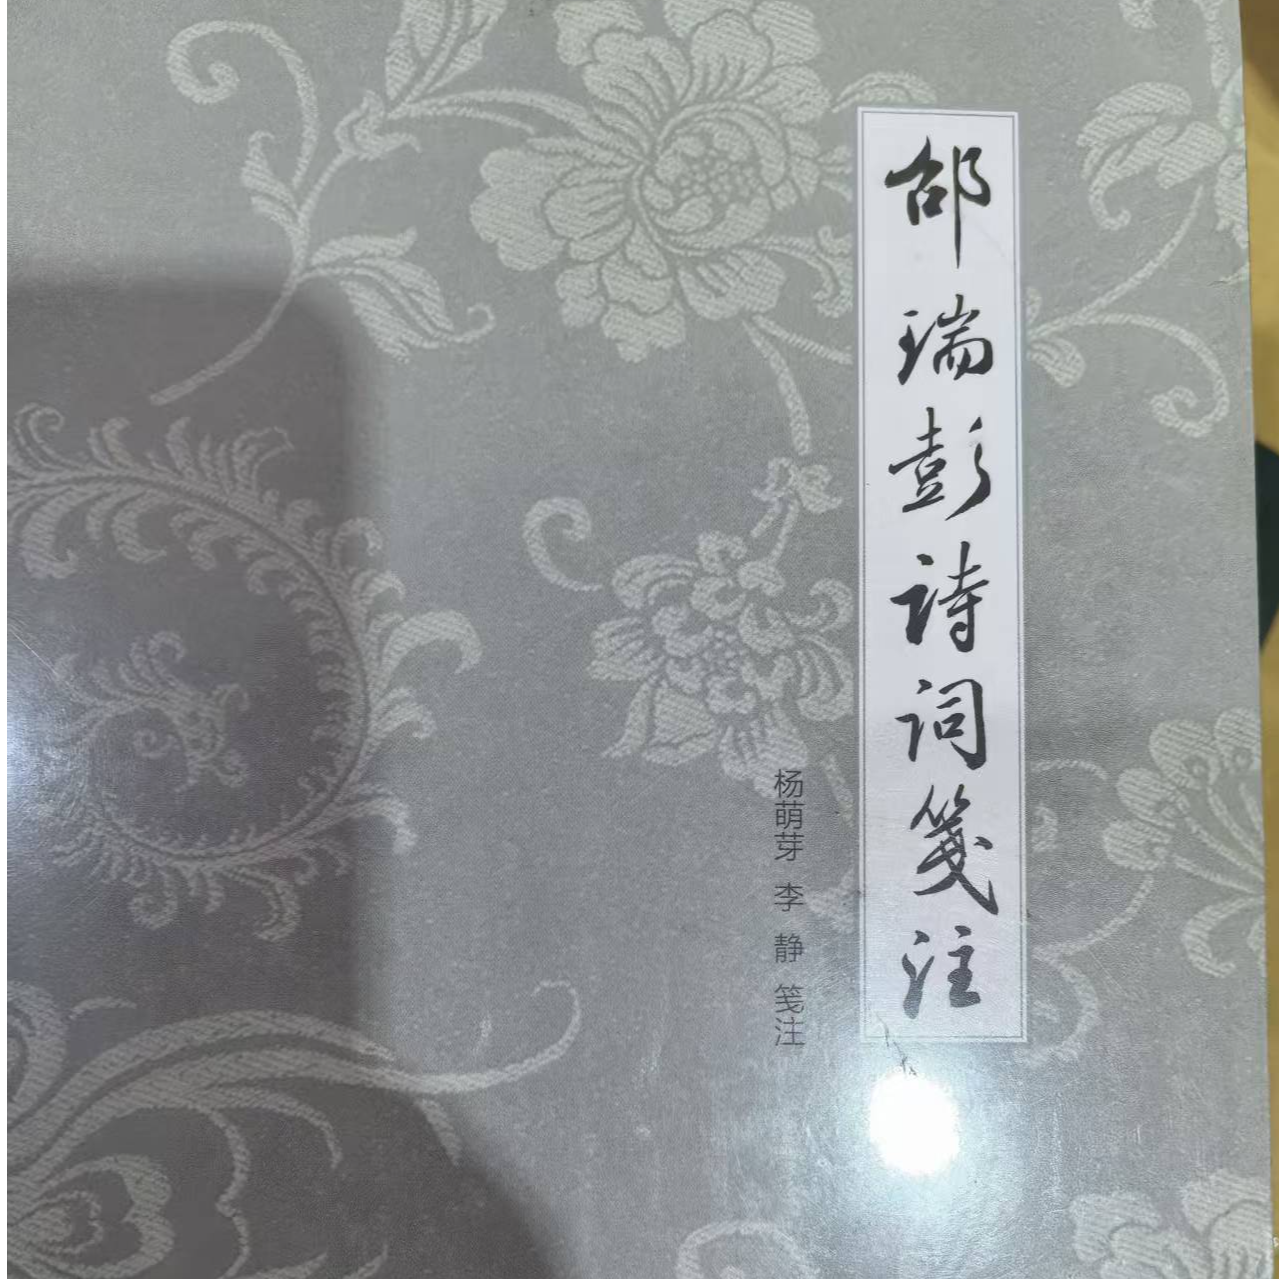 邵瑞彭诗词笺注
杨萌芽 李 静 笺注